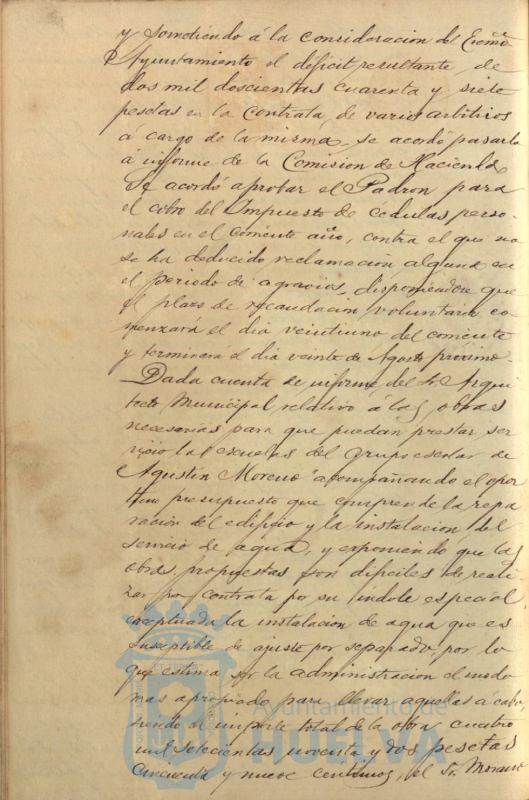 y sometiendo á la consideracion del Excmo
Ayuntamiento el déficit resultante, de
dos mil doscientas cuarenta y siete
pesetas en la contrata, de varios arbitrios
á cargo de la misma, se acordó pasarla
á informe de la Comision de Hacienda
Se acordó aprobar el Padron para
el cobro del Impuesto de cédulas perso-
nales en el corriente año, contra el que no
se ha deducido reclamacion alguna en
el periodo de agravios, disponiendose que
el plazo de recaudacion voluntaria co-
menzará el dia veintiuno del corriente
y terminará el dia veinte de Agosto próximo-
Dada cuenta de informe, del Sr. Arqui
tecto Municipal relativo á las obras
necesarias para que puedan prestar ser
vicio las escuelas del Grupo escolar de
"Agustin Moreno" acompañando el opor
tuno presupuesto que comprende la repa
ración del edificio y la instalacion, del
servicio de agua, y exponiendo que las
obras, propuestas son dificiles de reali
zar por contrata por su indole especial
exceptuada la instalacion de agua que es
susceptible de ajuste por separado, por lo
que estima, por la administracion el modo
mas apropiado para llevar aquellas á cabo
siendo el importe total de la obra cuatro
mil setecientas noventa y dos pesetas
cincuenta y nueve centimos, el Sr. Morano
Ayuntamiento de
HUELVA